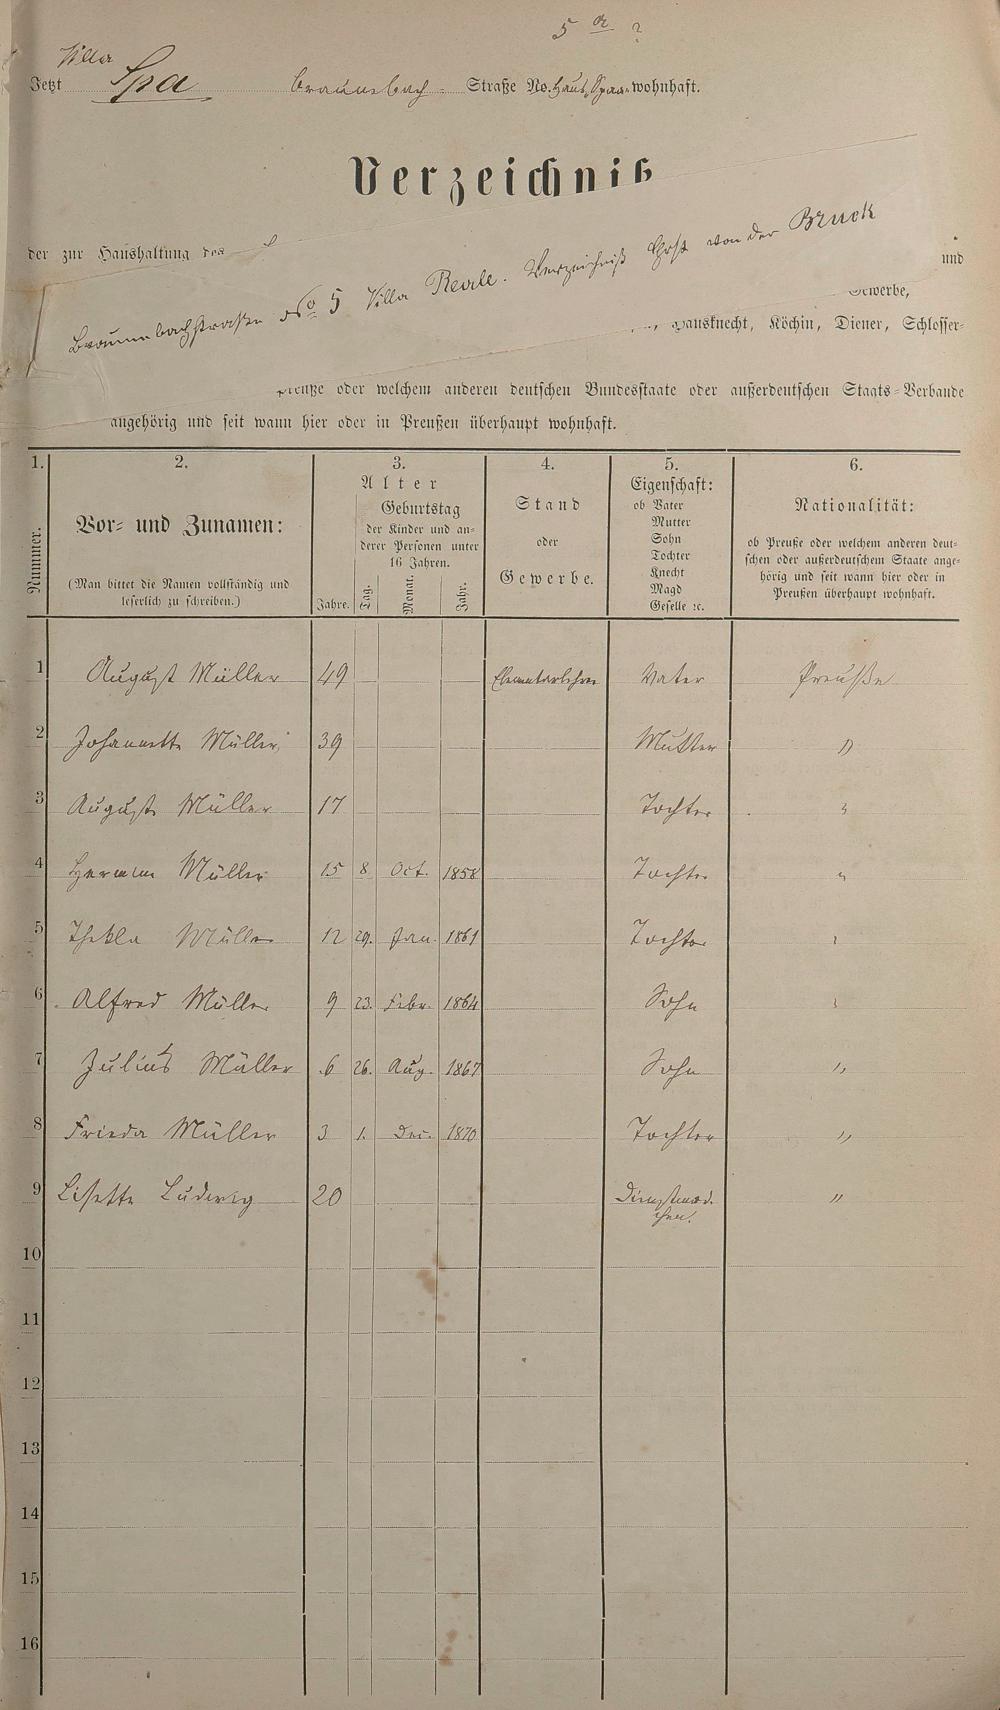 5 a ?
Villa
Jetzt Spa Braunsbach- Straße No. Haus Spaa wohnhaft.
Verzeichniß
der zur Haushaltung des
und
Braunsbachstraße No 5 Villa Reale. Verzeichniß von der Bruck
Gewerbe,
Hausknecht, Köchin, Diener, Schlosser-
Preuße oder welchem anderen deutschen Bundesstaate oder außerdeutschen Staats-Verbande
angehörig und seit wann hier oder in Preußen überhaupt wohnhaft.
1. 2. 3. 4. 5. 6.
Nummer.
Vor- und Zunamen:
(Man bittet die Namen vollständig und
leserlich zu schreiben.)
Alter
Geburtstag
der Kinder und an-
derer Personen unter
16 Jahren.
Jahre. Tag. Monat. Jahr.
Stand
oder
Gewerbe.
Eigenschaft:
ob Vater
Mutter
Sohn
Tochter
Knecht
Magd
Geselle ꝛc.
Nationalität:
ob Preuße oder welchem anderen deut-
schen oder außerdeutschem Staate ange-
hörig und seit wann hier oder in
Preußen überhaupt wohnhaft.
1 August Müller 49 Elementarlehrer Vater Preuße
2 Johannette Müller 39 Mutter "
3 Auguste Müller 17 Tochter "
4 Hermine Müller 15 8. Oct. 1858 Tochter "
5 Thekla Müller 12 29. Jan. 1861 Tochter "
6 Alfred Müller 9 23. Febr. 1864 Sohn "
7 Julius Müller 6 26. Aug. 1867 Sohn "
8 Frieda Müller 3 1. Dec. 1870 Tochter "
9 Lisette Ludwig 20 Dienstmäd-
chen. "
10
11
12
13
14
15
16